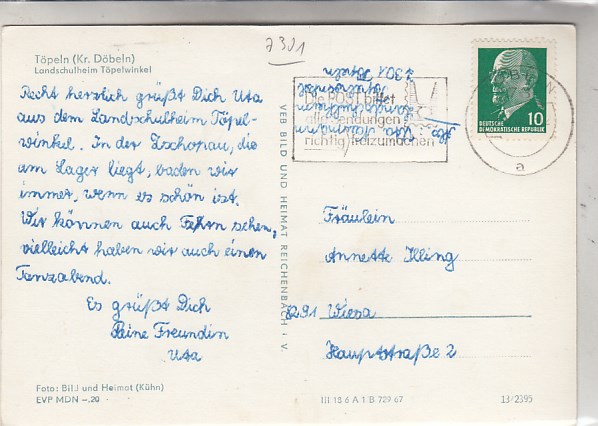 7301
Töpeln (Kr. Döbeln)
Landschulheim Töpelwinkel
Recht herzlich grüßt Dich Uta
aus dem Landschulheim Töpel-
winkel. In der Zschopau, die
am Lager liegt, baden wir
immer, wenn es schön ist.
Wir können auch Fehrn sehen,
vielleicht haben wir auch einen
Tanzabend.
Es grüßt Dich
Deine Freundin
Uta
Foto: Bild und Heimat (Kühn)
EVP MDN –.20
VEB BILD UND HEIMAT REICHENBACH i. V.
Die POST bittet
alle Sendungen
richtig freizumachen
Abs. Uta
7301
a
10
DEUTSCHE
DEMOKRATISCHE REPUBLIK
Fräulein
Annette Illing
8291 Wiesa
Hauptstraße 2
III 18 6 A 1 B 729 67
13/2395